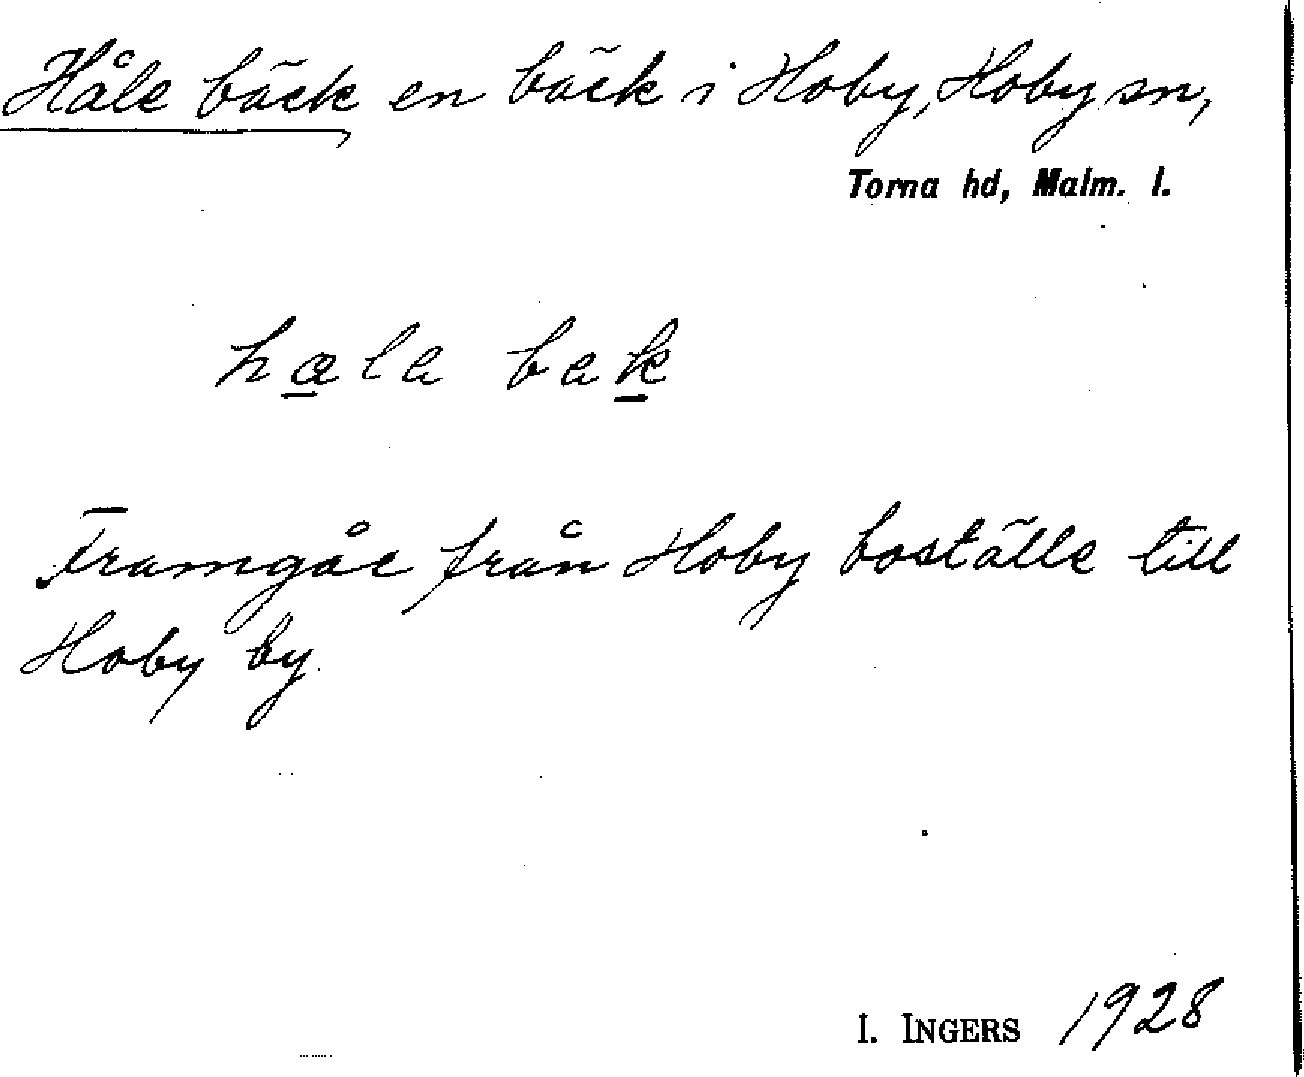 Håle bäck en bäck i Hoby, Hoby sn,
Torna hd, Malm. l.
hala bak
Framgår från Hoby boställe till
Hoby by.
I. INGERS 1928